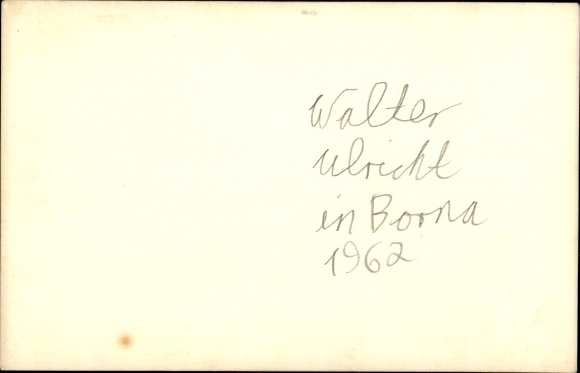 Walter
Ulricht
in Borna
1962